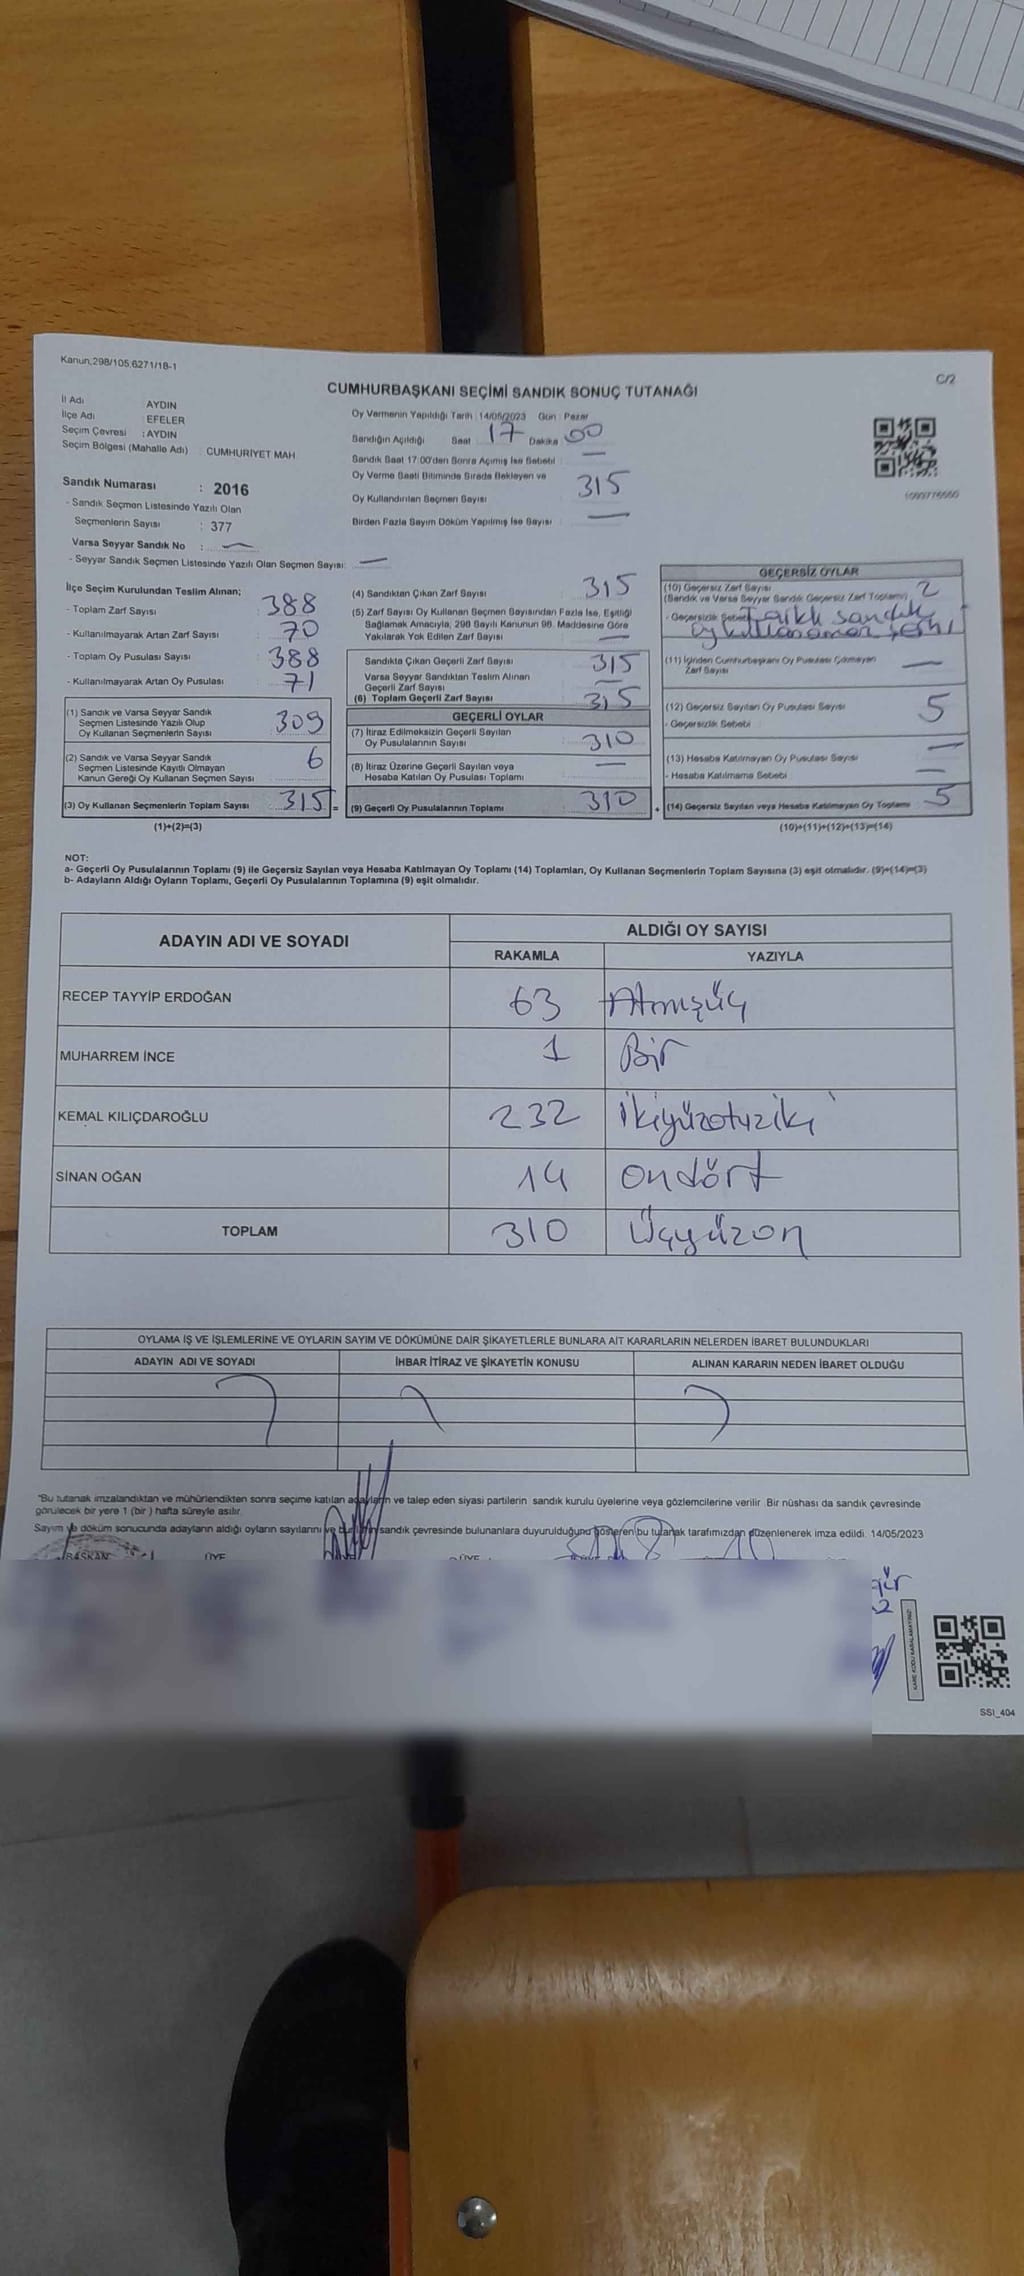 Kanun.298/105,6271/18-1
C/2
CUMHURBAŞKANI SEÇİMİ SANDIK SONUÇ TUTANAĞI
İl Adı AYDIN
İlçe Adı : EFELER
Seçim Çevresi : AYDIN
Seçim Bölgesi (Mahalle Adı) : CUMHURİYET MAH
Sandık Numarası : 2016
- Sandık Seçmen Listesinde Yazılı Olan
Seçmenlerin Sayısı : 377
Varsa Seyyar Sandık No : —
- Seyyar Sandık Seçmen Listesinde Yazılı Olan Seçmen Sayısı: —
Oy Vermenin Yapıldığı Tarih : 14/05/2023 Gün : Pazar
Sandığın Açıldığı Saat 17 Dakika 00
Sandık Saat 17:00'den Sonra Açılmış İse Sebebi : —
Oy Verme Saati Bitiminde Sırada Bekleyen ve
Oy Kullandırılan Seçmen Sayısı 315
Birden Fazla Sayım Döküm Yapılmış İse Sayısı —
İlçe Seçim Kurulundan Teslim Alınan;
- Toplam Zarf Sayısı : 388
- Kullanılmayarak Artan Zarf Sayısı : 70
- Toplam Oy Pusulası Sayısı : 388
- Kullanılmayarak Artan Oy Pusulası : 71
(1) Sandık ve Varsa Seyyar Sandık
Seçmen Listesinde Yazılı Olup
Oy Kullanan Seçmenlerin Sayısı 309
(2) Sandık ve Varsa Seyyar Sandık
Seçmen Listesinde Kayıtlı Olmayan
Kanun Gereği Oy Kullanan Seçmen Sayısı 6
(3) Oy Kullanan Seçmenlerin Toplam Sayısı 315 =
(1)+(2)=(3)
(4) Sandıktan Çıkan Zarf Sayısı : 315
(5) Zarf Sayısı Oy Kullanan Seçmen Sayısından Fazla İse, Eşitliği
Sağlamak Amacıyla, 298 Sayılı Kanunun 98. Maddesine Göre
Yakılarak Yok Edilen Zarf Sayısı : —
Sandıkta Çıkan Geçerli Zarf Sayısı 315
Varsa Seyyar Sandıktan Teslim Alınan
Geçerli Zarf Sayısı —
(6) Toplam Geçerli Zarf Sayısı 315
GEÇERLİ OYLAR
(7) İtiraz Edilmeksizin Geçerli Sayılan
Oy Pusulalarının Sayısı : 310
(8) İtiraz Üzerine Geçerli Sayılan veya
Hesaba Katılan Oy Pusulası Toplamı —
(9) Geçerli Oy Pusulalarının Toplamı 310 +
GEÇERSİZ OYLAR
(10) Geçersiz Zarf Sayısı
(Sandık ve Varsa Seyyar Sandık Geçersiz Zarf Toplamı) 2
- Geçersizlik Sebebi Farklı sandık
oy kullanamaz şerhi
(11) İçinden Cumhurbaşkanı Oy Pusulası Çıkmayan
Zarf Sayısı —
(12) Geçersiz Sayılan Oy Pusulası Sayısı 5
- Geçersizlik Sebebi
(13) Hesaba Katılmayan Oy Pusulası Sayısı —
- Hesaba Katılmama Sebebi —
(14) Geçersiz Sayılan veya Hesaba Katılmayan Oy Toplamı 5
(10)+(11)+(12)+(13)=(14)
NOT:
a- Geçerli Oy Pusulalarının Toplamı (9) ile Geçersiz Sayılan veya Hesaba Katılmayan Oy Toplamı (14) Toplamları, Oy Kullanan Seçmenlerin Toplam Sayısına (3) eşit olmalıdır. (9)+(14)=(3)
b- Adayların Aldığı Oyların Toplamı, Geçerli Oy Pusulalarının Toplamına (9) eşit olmalıdır.
ADAYIN ADI VE SOYADI
ALDIĞI OY SAYISI
RAKAMLA YAZIYLA
RECEP TAYYİP ERDOĞAN 63 Atmışüç
MUHARREM İNCE 1 Bir
KEMAL KILIÇDAROĞLU 232 ikiyüzotuziki
SİNAN OĞAN 14 ondört
TOPLAM 310 Üçyüzon
OYLAMA İŞ VE İŞLEMLERİNE VE OYLARIN SAYIM VE DÖKÜMÜNE DAİR ŞİKAYETLERLE BUNLARA AİT KARARLARIN NELERDEN İBARET BULUNDUKLARI
ADAYIN ADI VE SOYADI İHBAR İTİRAZ VE ŞİKAYETİN KONUSU ALINAN KARARIN NEDEN İBARET OLDUĞU
"Bu tutanak imzalandıktan ve mühürlendikten sonra seçime katılan adayların ve talep eden siyasi partilerin sandık kurulu üyelerine veya gözlemcilerine verilir. Bir nüshası da sandık çevresinde
görülecek bir yere 1 (bir) hafta süreyle asılır.
Sayım ve döküm sonucunda adayların aldığı oyların sayılarını ve sandık çevresinde bulunanlara duyurulduğunu gösteren bu tutanak tarafımızdan düzenlenerek imza edildi. 14/05/2023
BAŞKAN ÜYE ÜYE
KARE KODU KARALAMAYINIZ!
SSI_404